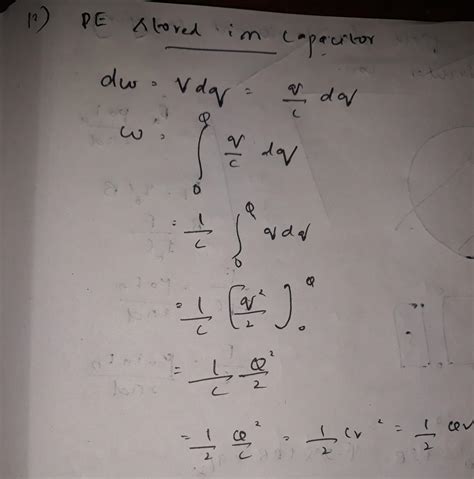 12) PE stored in capacitor
dw = Vdq = q/c dq
w = ∫₀^Q q/c dq
= 1/c ∫₀^Q q dq
= 1/c [q²/2]₀^Q
= 1/c Q²/2
= 1/2 Q²/c = 1/2 cv² = 1/2 QV